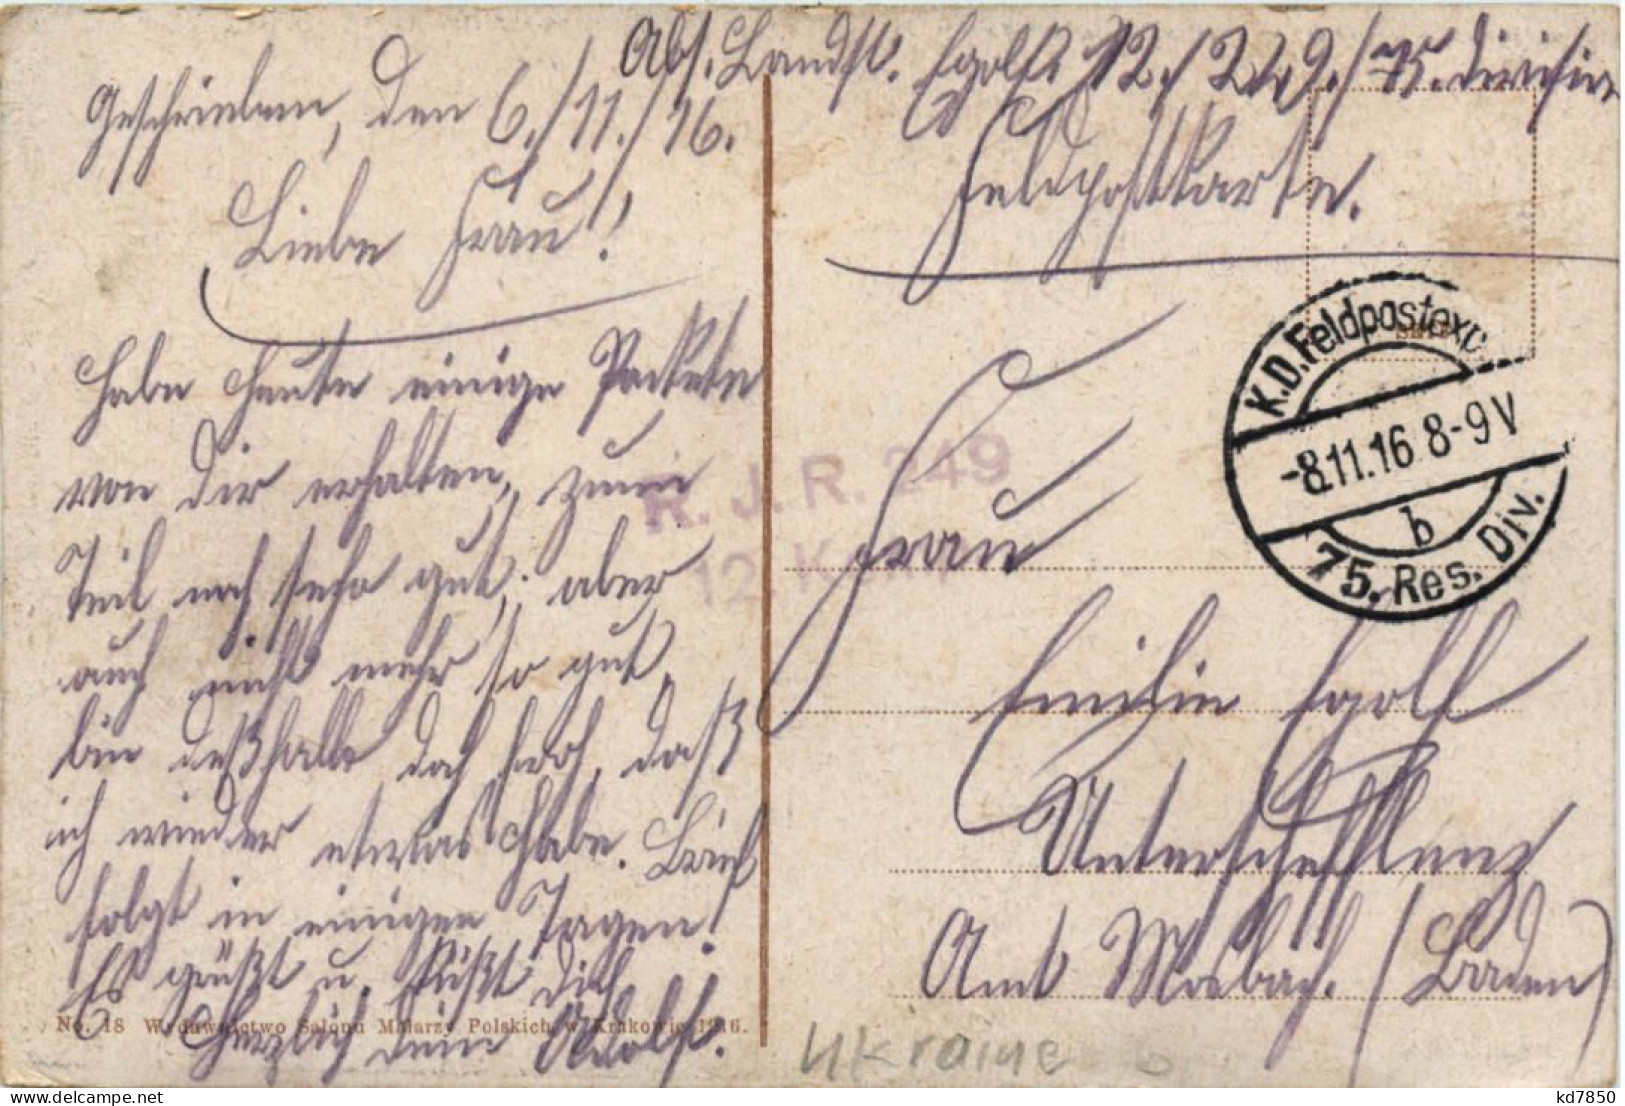 Abs. Landst. Egolf. 12./249./75. Division
Geschrieben, den 6./11./16.
Feldpostkarte.
Liebe Frau!
Habe heute einige Packete
von Dir erhalten, zum
Teil noch sehr gut, aber
auch nicht mehr so gut,
bin deßhalb doch froh, daß
ich wieder etwas habe. Brief
folgt in einigen Tagen!
Es grüßt u. küßt dich
Herzlich dein Adolf.
No. 18 Wydawnictwo Salonu Malarzy Polskich w Krakowie 1916.
R. J. R. 249
12. Komp.
K.D. Feldpostexp.
-8.11.16 8-9V
b
75. Res. Div.
Frau
Emilie Egolf
Unterschefflenz
Amt Mosbach. (Baaden)
Ukraine
kd7850